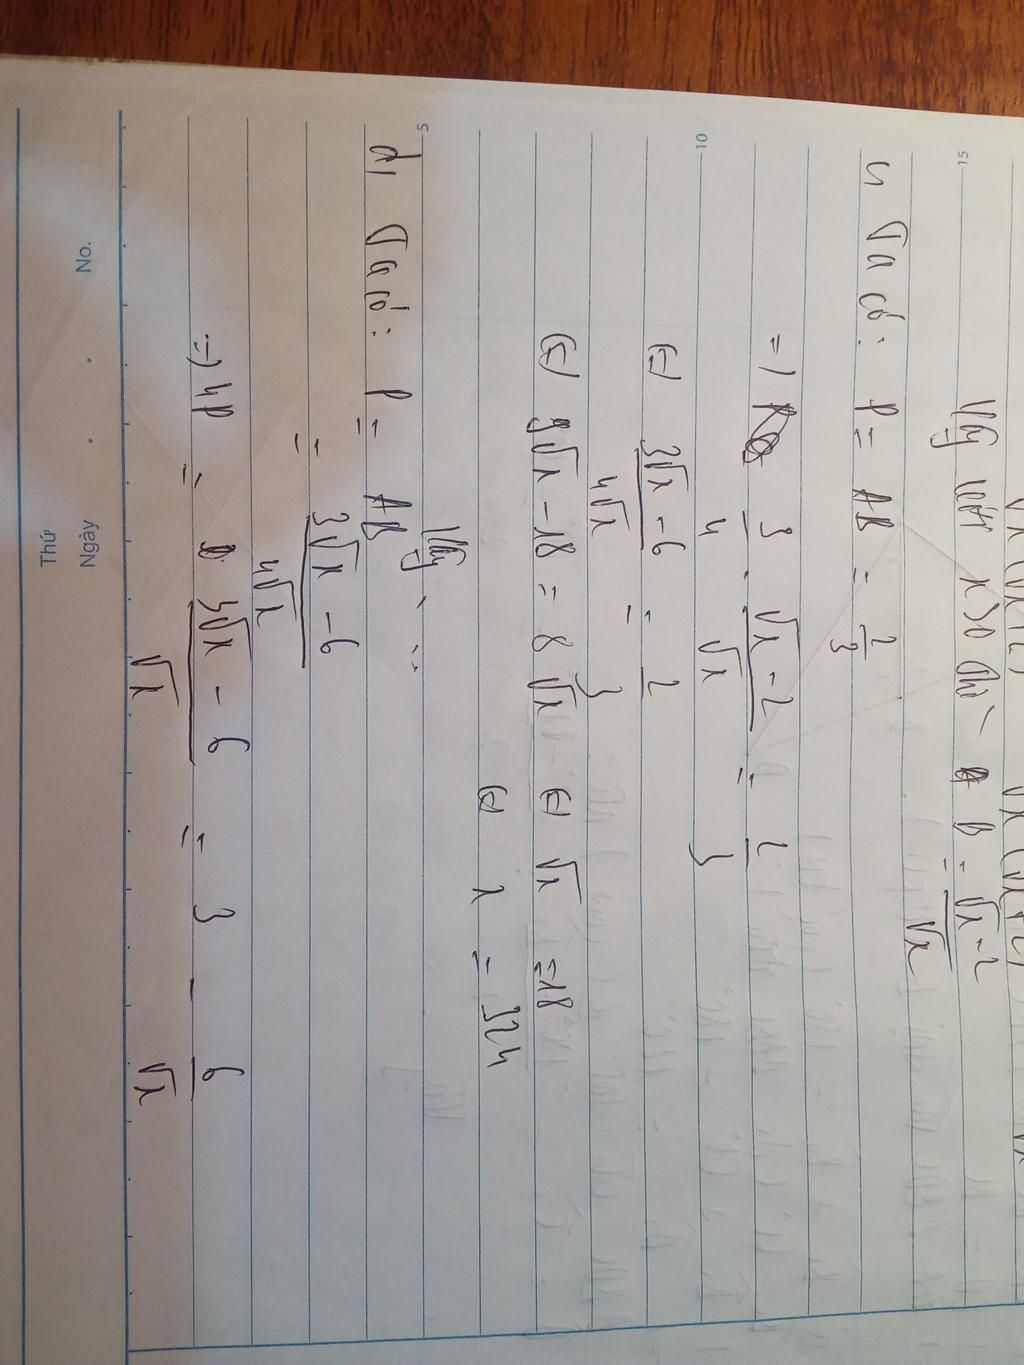 Vậy với x>0 thì B = \frac{√x-2}{√x}
c, Ta có: P = AB = \frac{2}{3}
=) \frac{3}{4} . \frac{√x-2}{√x} = \frac{2}{3}
(=) \frac{3√x-6}{4√x} = \frac{2}{3}
(=) 9√x-18 = 8√x (=) √x = 18
(=) x = 324
Vậy ...
d, Ta có: P = AB
= \frac{3√x-6}{4√x}
=) 4P = \frac{3√x - 6}{√x} = 3 - \frac{6}{√x}
15
10
5
No.
Ngày . .
Thứ